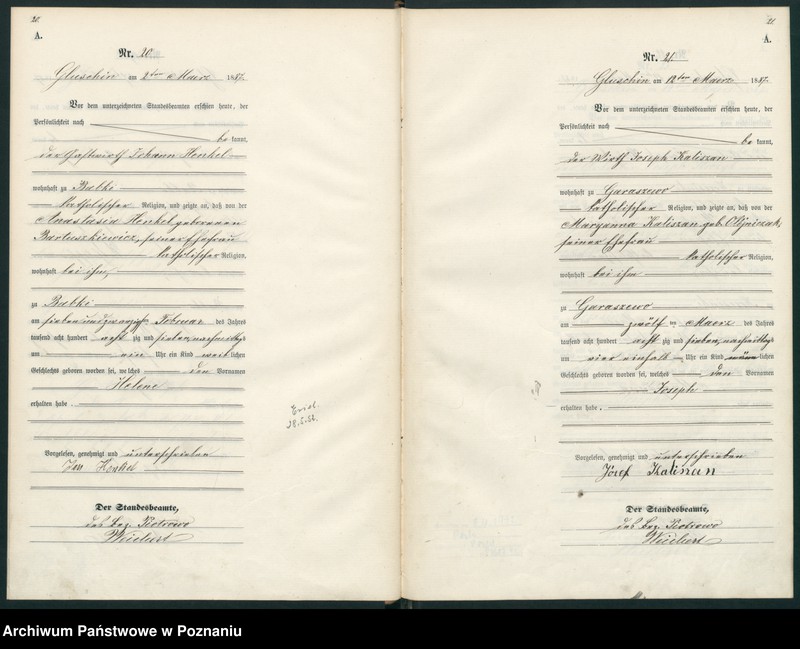 20.
A.
Nr. 20.
Gluschin am 2ten Maerz 1887.
Vor dem unterzeichneten Standesbeamten erschien heute, der
Persönlichkeit nach
be kannt,
der Gastwirth Johann Henkel
wohnhaft zu Babki
katholischer Religion, und zeigte an, daß von der
Anastasia Henkel geborenen
Bartuszkiewicz, seiner Ehefrau
katholischer Religion,
wohnhaft bei ihm,
zu Babki
am sieben und zwanzigsten Februar des Jahres
tausend acht hundert acht zig und sieben, nachmittags
um ein Uhr ein Kind weib lichen
Geschlechts geboren worden sei, welches den Vornamen
Helene
erhalten habe.
Vorgelesen, genehmigt und unterschrieben
Henkel
Der Standesbeamte,
des Bez. Piotrowo
21.
A.
Nr. 21.
Gluschin am 12ten Maerz 1887.
Vor dem unterzeichneten Standesbeamten erschien heute, der
Persönlichkeit nach
be kannt,
der Wirth Joseph Kaliszan
wohnhaft zu Garaszewo
katholischer Religion, und zeigte an, daß von der
Maryanna Kaliszan geb. Olejniczak,
seiner Ehefrau
katholischer Religion,
wohnhaft bei ihm
zu Garaszewo
am zwölf ten Maerz des Jahres
tausend acht hundert acht zig und sieben, nachmittags
um vier einhalb Uhr ein Kind männ lichen
Geschlechts geboren worden sei, welches den Vornamen
Joseph
erhalten habe.
Vorgelesen, genehmigt und unterschrieben
Józef Kaliszan
Der Standesbeamte,
des Bez. Piotrowo
Archiwum Państwowe w Poznaniu